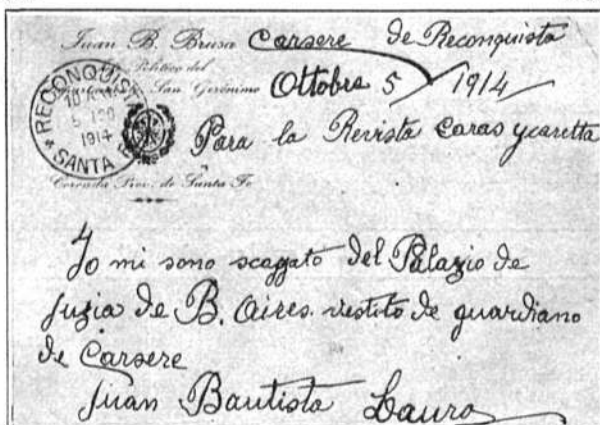 Juan B. Brusa Carsere de Reconquista
Político del
San Gerónimo Ottobre 5 / 1914
RECONQUIST
5
1914
SANTA
Para la Revista Caras ycaretta
Coronda Prov. de Santa Fe
Io mi sono scappato del Palazio de
juzia de B. Aires. vestito de guardiano
de Carsere
Juan Bautista Lauro